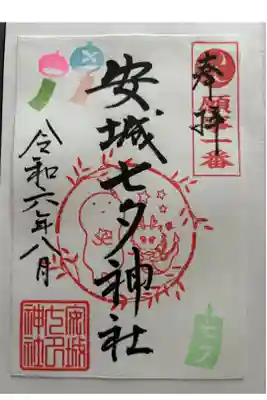 奉拝
願事一番
安城七夕神社
令和六年八月
安城
七夕
神社